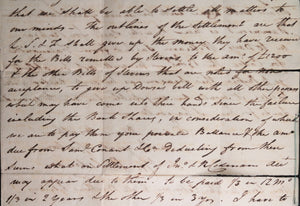 that we shall be able to settle all matters to
our minds - The outline of the settlement are that
shall give up the money they have received
for the Bills remitted by Stevens, to the am of £1200
& the other Bills of Stevens that are noted for non
acceptance, to give up Dowse's bill with all other
which may have come into the hand, Since the failure
including the Bank Shares, in consideration of what
we are to pay them your private Ballance & the am
due from Sam Conant &Co Deducting from these
Sums what on Settlement of
may appear due to them. to be paid 1/3 in 12 mo
1/3 in 2 years & the other 1/3 in 3 yrs. I have to